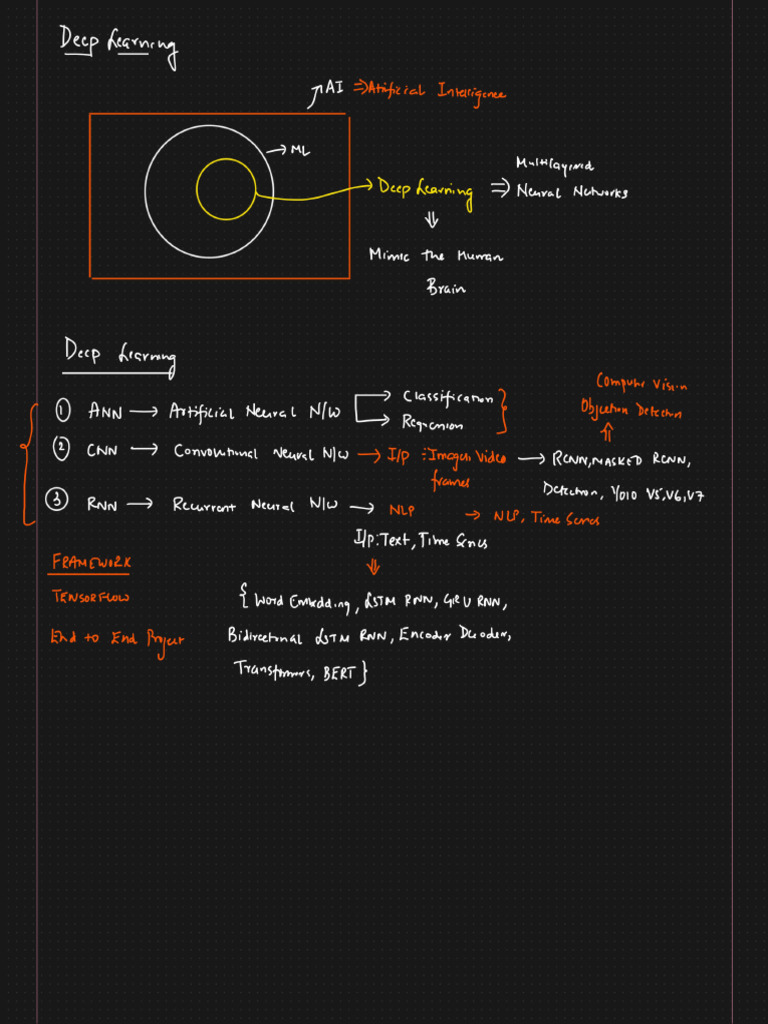 Deep Learning
AI ⇒ Artificial Intelligence
→ ML
Multilayered
→ Deep Learning ⇒ Neural Networks
⇓
Mimic the Human
Brain
Deep Learning
Computer Vision
① ANN → Artificial Neural N/W → Classification
Objection Detection
→ Regression
⇑
② CNN → Convolutional Neural N/W → I/P : Images, Video → RCNN, MASKED RCNN,
frames
Detection, Yolo V5, V6, V7
③ RNN → Recurrent Neural N/W → NLP → NLP, Time Series
I/p: Text, Time Series
⇓
FRAMEWORK
TENSORFLOW
{ Word Embedding, LSTM RNN, GRU RNN,
End to End Project
Bidirectional LSTM RNN, Encoder Decoder,
Transformers, BERT }